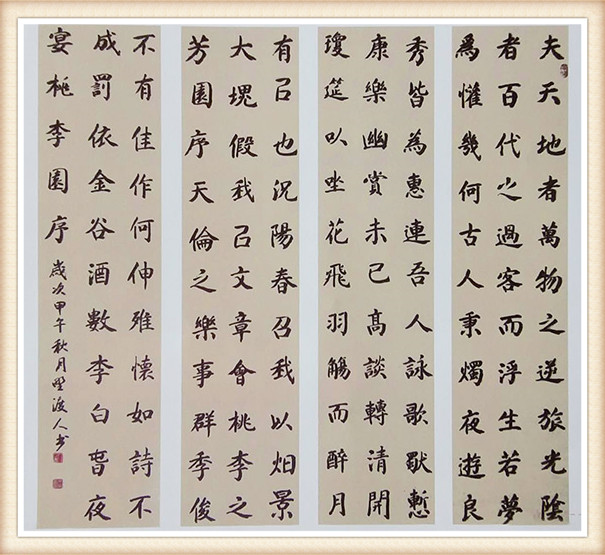 夫天地者萬物之逆旅光陰
者百代之過客而浮生若夢
爲懽幾何古人秉燭夜遊良
有㠯也況陽春召我以烟景
大塊假我㠯文章會桃李之
芳園序天倫之樂事群季俊
秀皆為惠連吾人詠歌慙
康樂幽賞未已高談轉清開
瓊筵以坐花飛羽觴而醉月
不有佳作何伸雅懷如詩不
成罰依金谷酒數李白春夜
宴桃李園序
歲次甲午秋月野渡人书